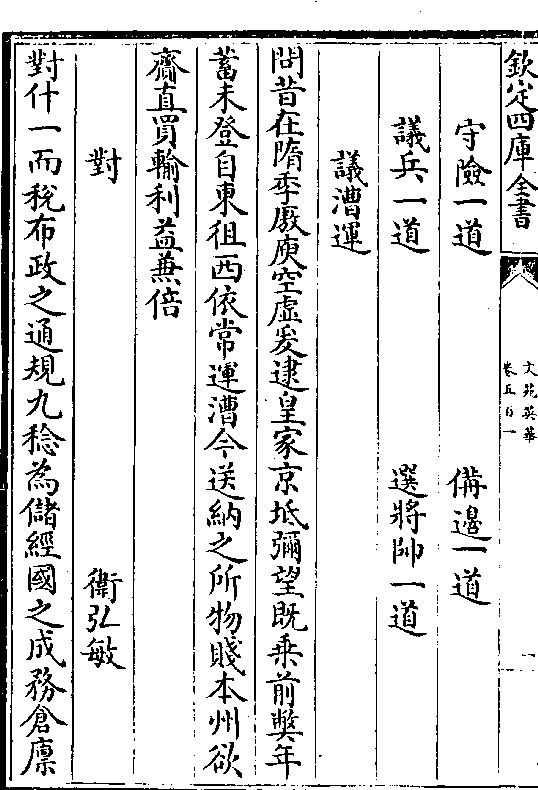 欽定四庫全書
文苑英華
卷五百一
一
守險一道 備邊一道
議兵一道 選將帥一道
議漕運
問昔在隋季廒庾空虛爰逮皇家京坻彌望既乗前弊年
蓄未登自東徂西依常運漕今送納之所物賤本州欲
齎直買輸利益兼倍
對 衛弘敏
對什一而稅布政之通規九稔為儲經國之成務倉廪